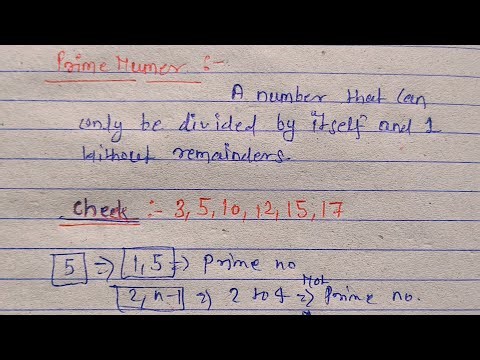 Prime Numer :-
A number that can
only be divided by "itself" and 1
without remainders.
Check :- 3, 5, 10, 12, 15, 17
5 => 1, 5 => Prime no
Not
2, n-1 => 2 to 4 => Prime no.